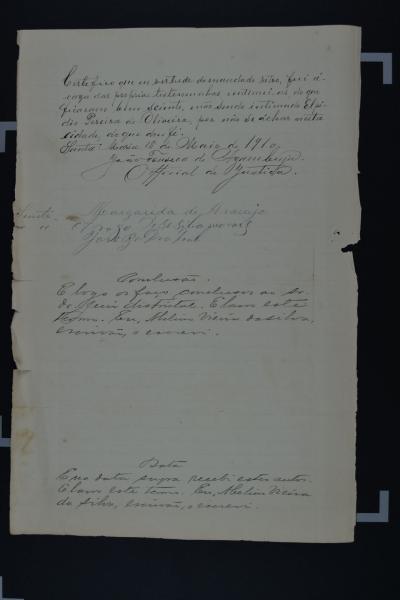 Certifico que em virtude do mandado retro, fui á
caza das proprias testemunhas e intimei as do que
ficaram bem sciente, e não sendo intimado Elpi-
dio Pereira de Oliveira, por não se achar nesta
cidade, do que dou fé.
Santa Maria 18 de Maio de 1910
João Fonseca de
Official de Justiça.
Margarida de Araujo
José
Conclusão.
E logo os faço conclusos ao Sr.
do Juiz Districtal. E lavro este
termo. Eu, Vieira da Silva,
escrivão, o escrevi.
Data
E na data supra recebi estes autos.
E lavro este termo. Eu, Vieira
da Silva, escrivão, o escrevi.